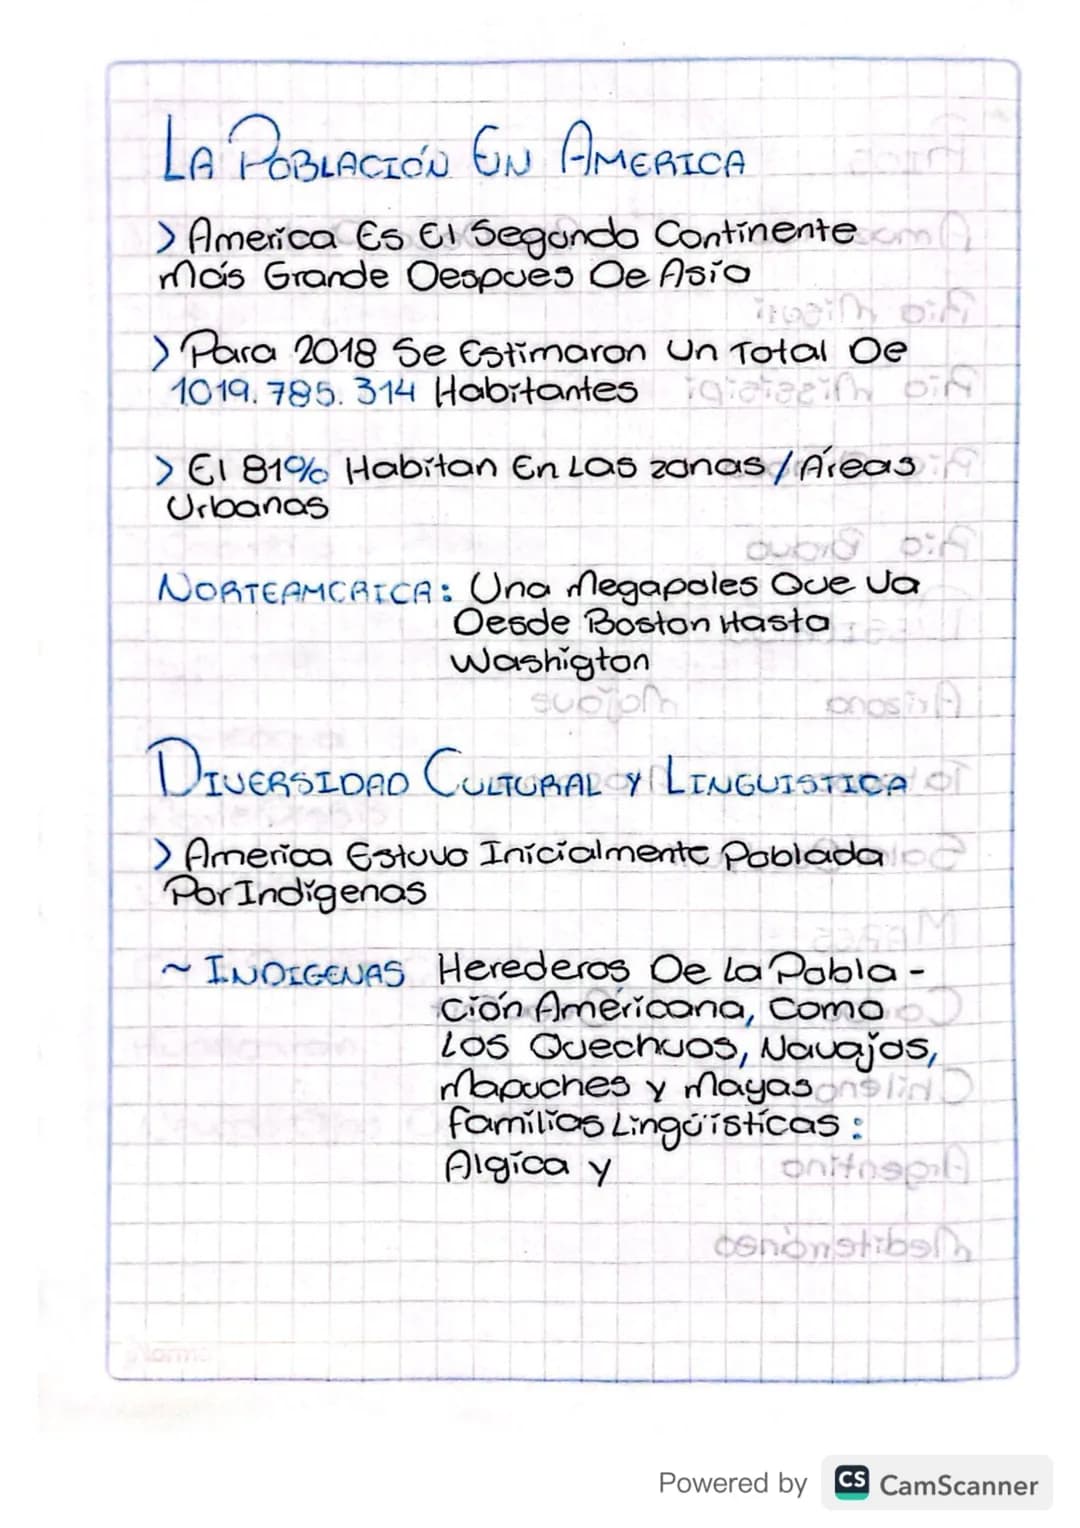 LA POBLACIÓN EN AMERICA
> America Es El Segundo Continente
Más Grande Despues De Asia
> Para 2018 Se Estimaron Un Total De
1019.785.314 Habitantes
> El 81% Habitan En Las zonas / Áreas
Urbanas
NORTEAMERICA: Una Megapoles Que Va
Desde Boston Hasta
Washigton
DIVERSIDAD CULTURAL Y LINGUISTICA
> America Estuvo Inicialmente Poblada
Por Indígenas
~ INDIGENAS Herederos De La Pobla-
ción Américana, Como
Los Quechuas, Navajos,
Mapuches y Mayas
familias Lingüísticas:
Algica y
Powered by CS CamScanner